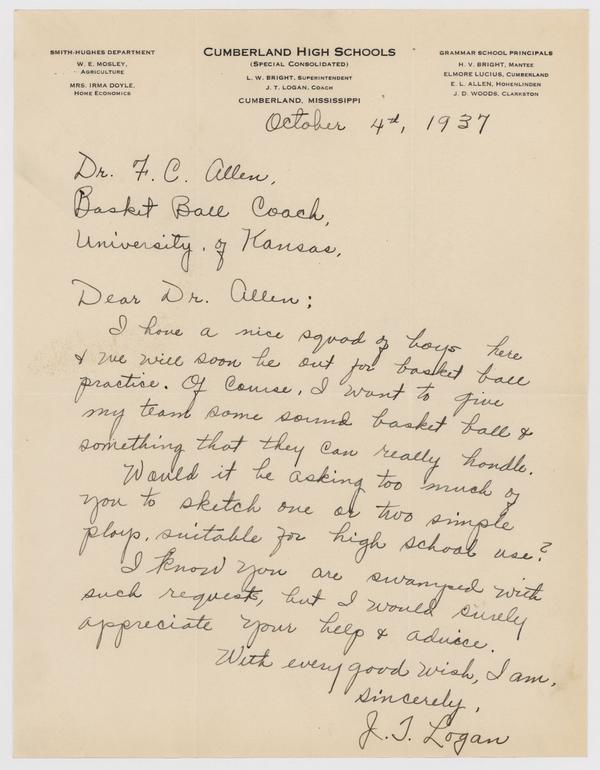 SMITH-HUGHES DEPARTMENT
W. E. MOSLEY,
AGRICULTURE
MRS. IRMA DOYLE,
HOME ECONOMICS
CUMBERLAND HIGH SCHOOLS
(SPECIAL CONSOLIDATED)
L. W. BRIGHT, SUPERINTENDENT
J. T. LOGAN, COACH
CUMBERLAND, MISSISSIPPI
GRAMMAR SCHOOL PRINCIPALS
H. V. BRIGHT, MANTEE
ELMORE LUCIUS, CUMBERLAND
E. L. ALLEN, HOHENLINDEN
J. D. WOODS, CLARKSTON
October 4th, 1937
Dr. F. C. Allen,
Basket Ball Coach,
University of Kansas,
Dear Dr. Allen;
I have a nice squad of boys here
& we will soon be out for basket ball
practice. Of course, I want to give
my team some sound basket ball &
something that they can really handle.
Would it be asking too much of
you to sketch one or two simple
plays, suitable for high school use?
I know you are swamped with
such request, but I would surely
appreciate your help & advice.
With every good wish, I am,
sincerely,
J. T. Logan